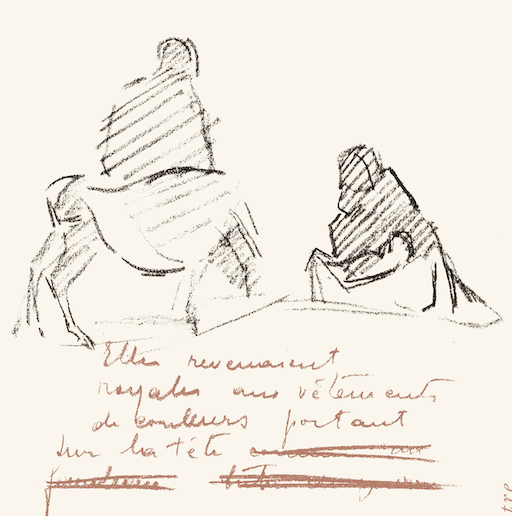 Elles revenaient
royales aux vêtements
de couleurs portant
sur la tête
tre